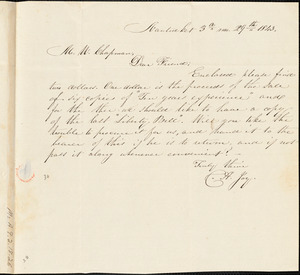 Nantucket 3rd mo 29th 1843.
Mr. M. Chapman,
Dear Friend,
Enclosed please find
two dollars. One dollar is the proceeds of the sale
of six copies of "Ten years experience" and
for the other we should like to have a copy
of the last Liberty Bell. Will you take the
trouble to procure it for us, and hand it to the
bearer of this if he is to return, and if not
pass it along whenever convenient? -
Truly thine